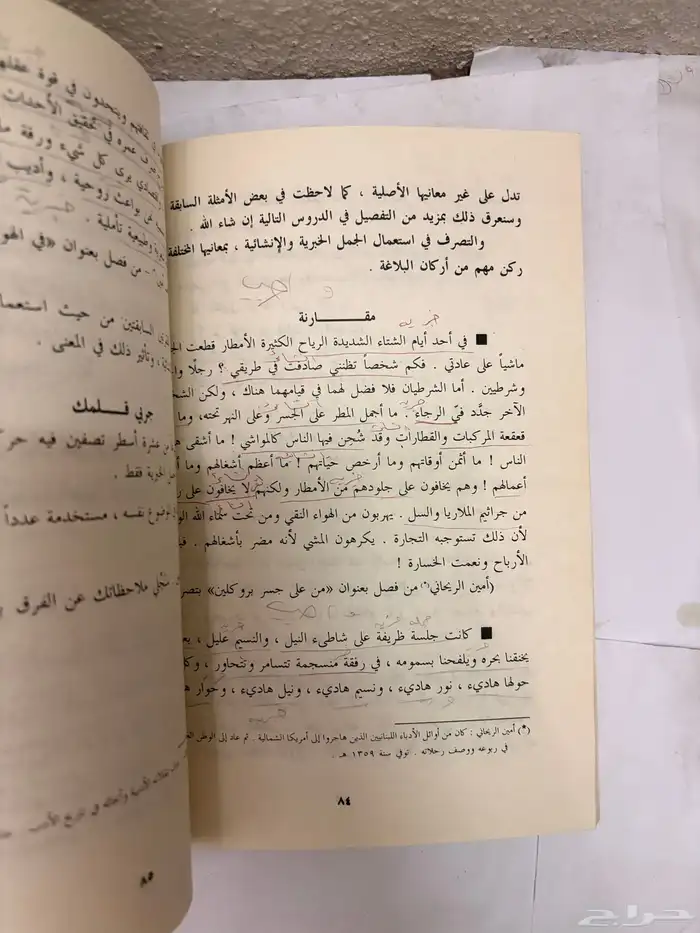 تدل على غير معانيها الأصلية ، كما لاحظت في بعض الأمثلة السابقة
وسنعرق ذلك بمزيد من التفصيل في الدروس التالية إن شاء الله .
والتصرف في استعمال الجمل الخبرية والإنشائية ، بمعانيها المختلفة
ركن مهم من أركان البلاغة .
مقــــارنة
خبرية
■ في أحد أيام الشتاء الشديدة الرياح الكثيرة الأمطار قطعت
ماشياً على عادتي . فكم شخصاً تظنني صادفت في طريقي ؟ رجلًا
وشرطيين . أما الشرطيان فلا فضل لهما في قيامهما هناك ، ولكن
الآخر جدَّد فيّ الرجاء . ما أجمل المطر على الجسر وعلى النهر تحته، وما
قعقعة المركبات والقطارات وقد شُحِن فيها الناس كالمواشي ! ما أشقى
الناس ! ما أثمن أوقاتهم وما أرخص حياتهم ! ما أعظم أشغالهم وما
أعمالهم ! وهم يخافون على جلودهم من الأمطار ولكنهم لا يخافون على
من جراثيم الملاريا والسل . يهربون من الهواء النقي ومن تحت سماء الله
لأن ذلك تستوجبه التجارة . يكرهون المشي لأنه مضر بأشغالهم .
الأرباح ونعمت الخسارة !
(أمين الريحاني(*) من فصل بعنوان «من على جسر بروكلين» بتصرف
■ كانت جلسة ظريفة على شاطىء النيل ، والنسيم عليل ،
يخنقنا بحره ويلفحنا بسمومه ، في رفقة منسجمة تتسامر وتتحاور ،
حولها هاديء ، نور هاديء ، ونسيم هاديء ، ونيل هاديء ، وحوار
(*) أمين الريحاني : كان من أوائل الأدباء اللبنانيين الذين هاجروا إلى أمريكا الشمالية . ثم عاد إلى الوطن
في ربوعه ووصف رحلاته . توفي سنة ١٣٥٩ هـ .
٨٤
ويتحدون في قوة
في تحقيق الأحداث
يرى كل شيء ورقة
بواعث روحية ، وأديب
وطبيعية تأملية .
من فصل بعنوان «في
السابقتين من حيث
، وتأثير ذلك في المعنى .
جربي قـــلمك
عشرة أسطر تصفين فيه
فقط .
نفسه ، مستخدمة عدداً
سجّلي ملاحظاتك عن الفرق
٨٥
حراج